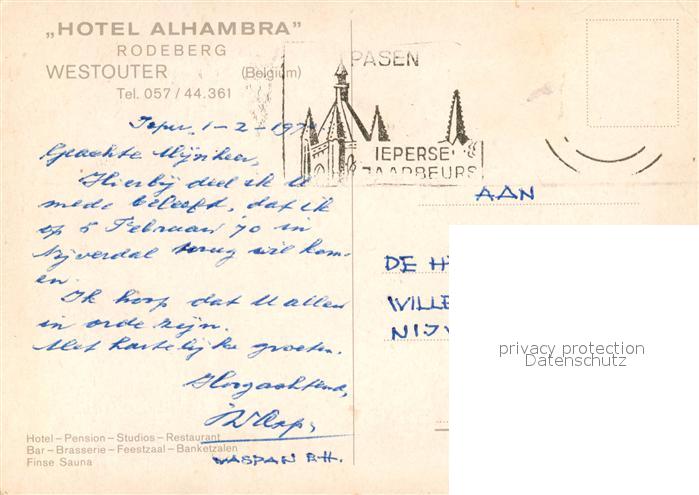 „HOTEL ALHAMBRA”
RODEBERG
WESTOUTER (Belgium)
Tel. 057 / 44.361
PASEN
IEPERSE
JAARBEURS
Ieper, 1-2-1970
Geachte Mijnheer,
Hierbij deel ik U
mede beleeft, dat ik
op 5 Februari '70 in
Nijverdal terug wil kom-
en.
Ik hoop dat U allen
in orde zijn.
Met hartelijke groeten.
Hoogachtend,
WASPAN B.H.
AAN
DE H
WILLE
NIJV
privacy protection
Datenschutz
Hotel – Pension – Studios – Restaurant
Bar – Brasserie – Feestzaal – Banketzalen
Finse Sauna